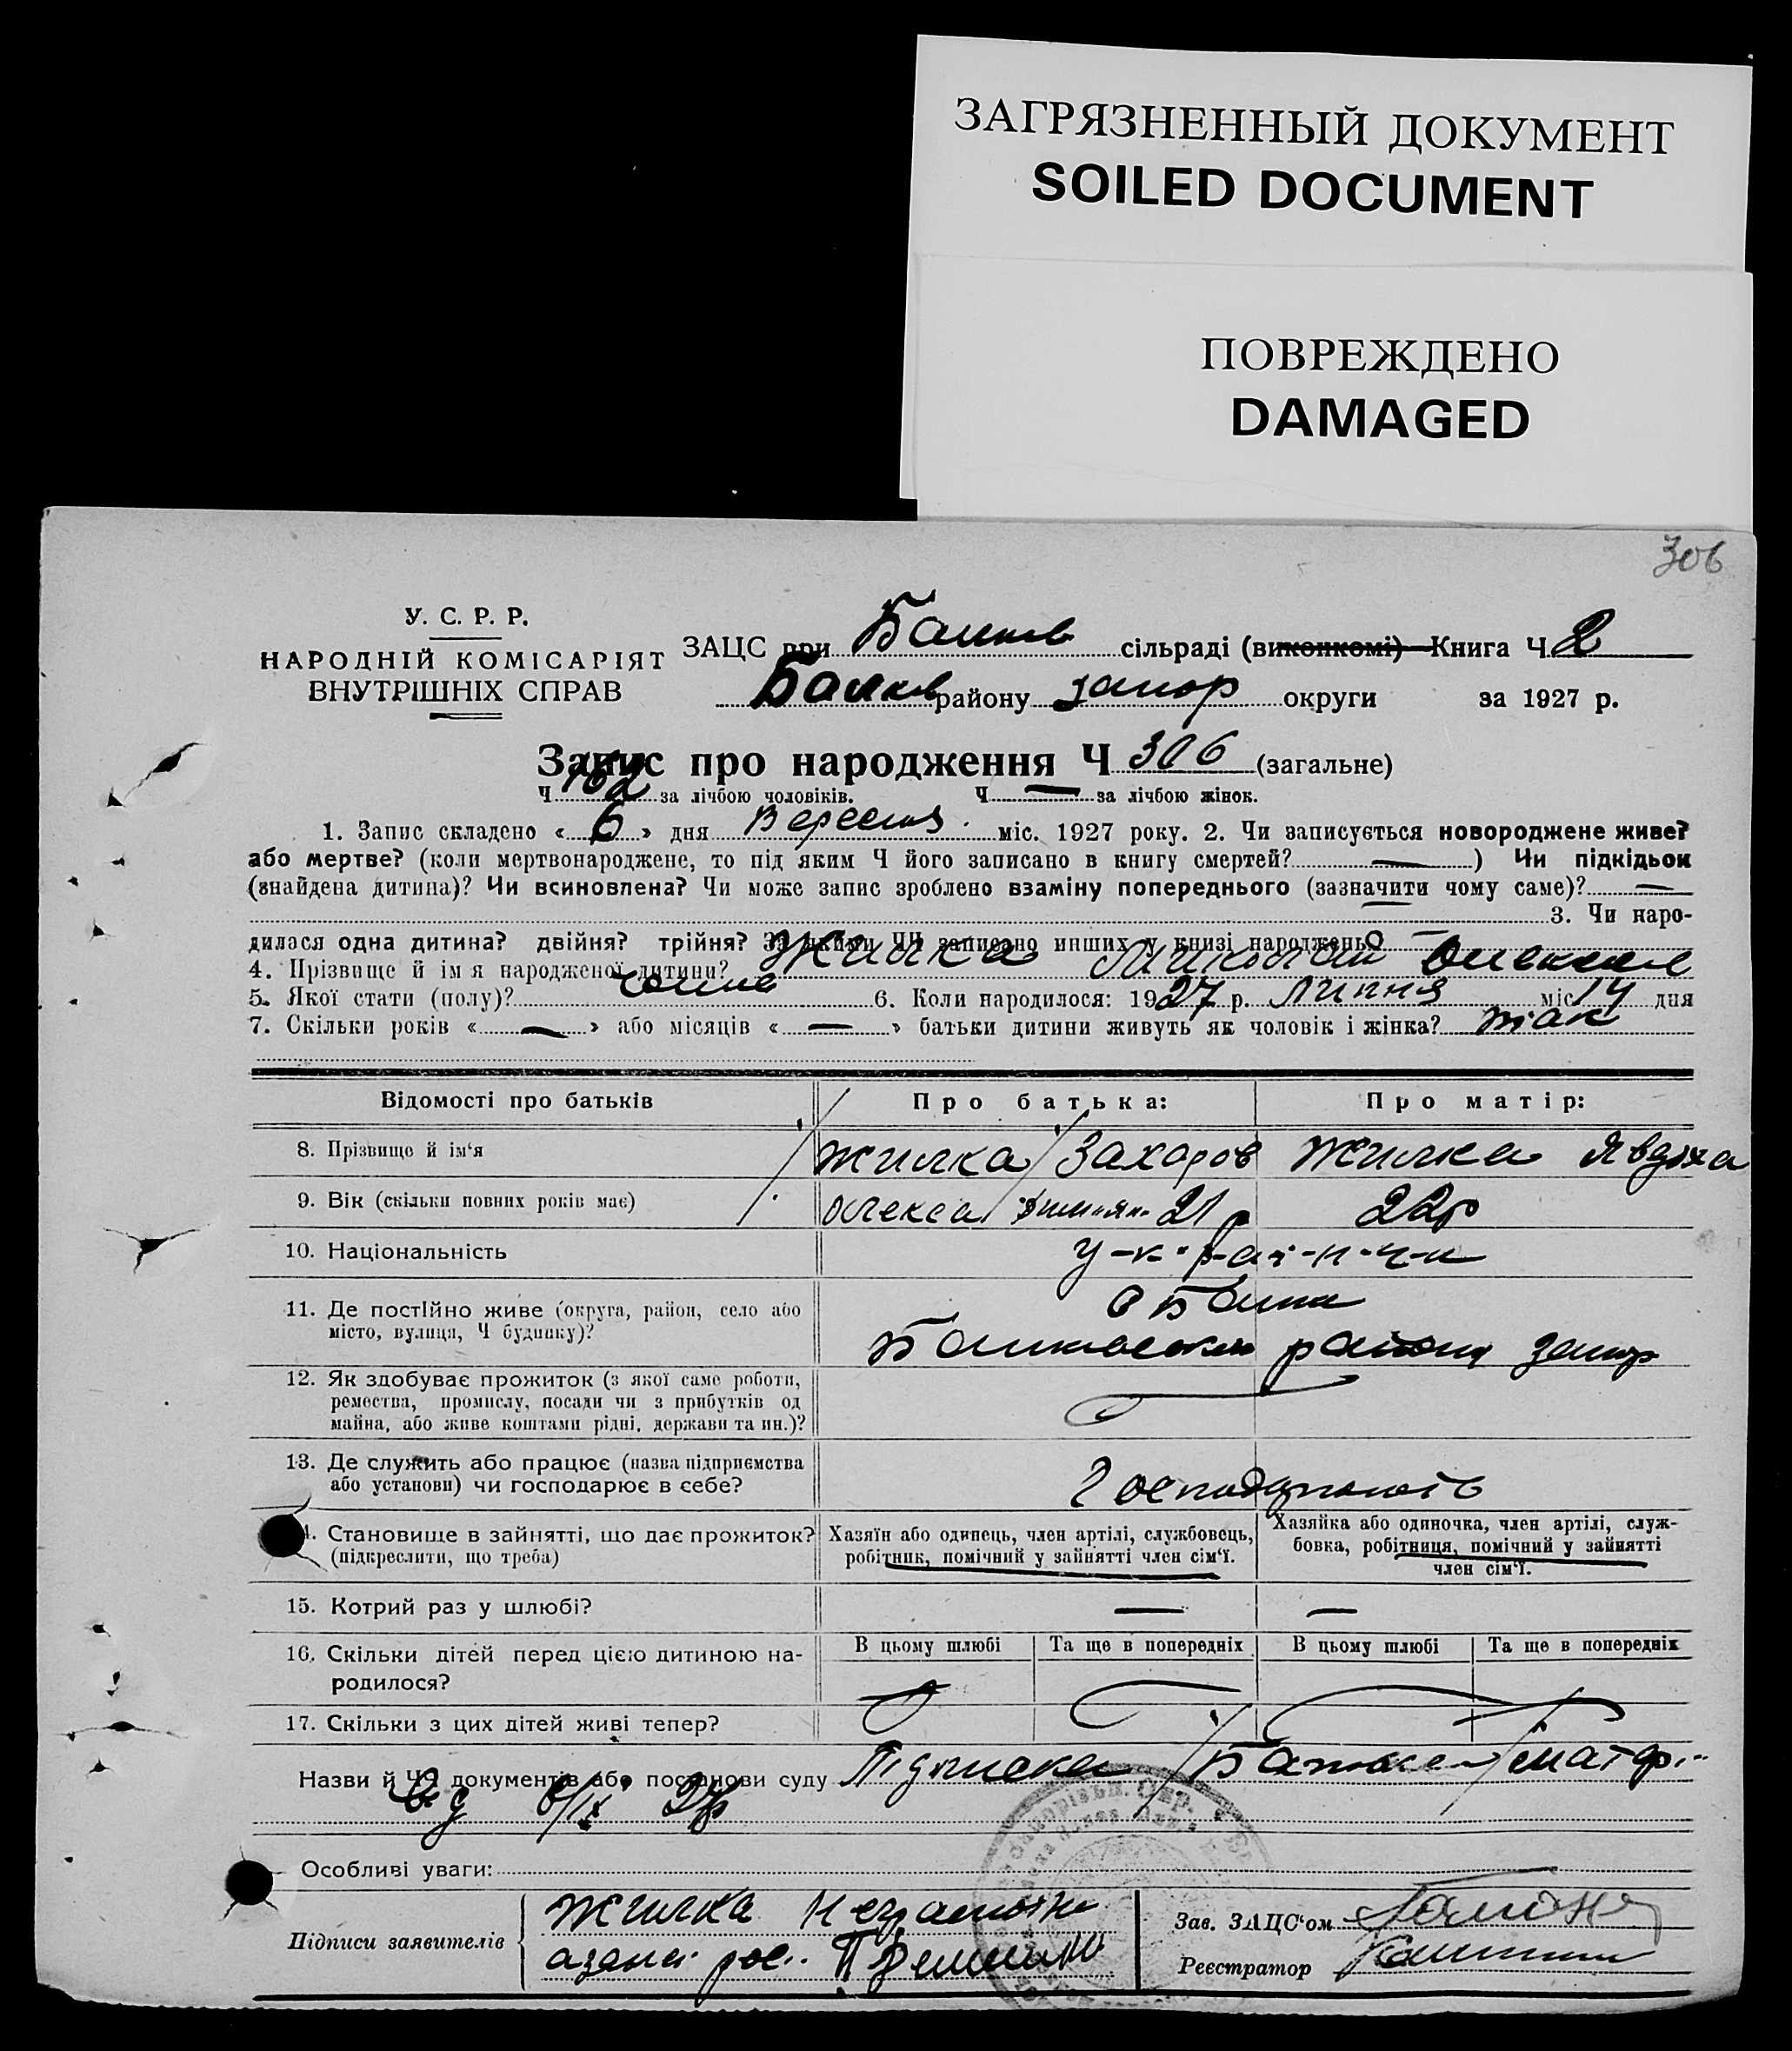 ЗАГРЯЗНЕННЫЙ ДОКУМЕНТ
SOILED DOCUMENT
ПОВРЕЖДЕНО
DAMAGED
306
У. С. Р. Р.
НАРОДНІЙ КОМІСАРІЯТ
ВНУТРІШНІХ СПРАВ
ЗАЦС при Балків сільраді (виконкомі) Книга Ч. 2
Балків району запор округи за 1927 р.
Запис про народження Ч 306 (загальне)
Ч 162 за лічбою чоловіків. Ч — за лічбою жінок.
1. Запис складено « 6 » дня Вересня міс. 1927 року. 2. Чи записується новороджене живе?
або мертве? (коли мертвонароджене, то під яким Ч його записано в книгу смертей? — ) Чи підкідьок
(знайдена дитина)? Чи всиновлена? Чи може запис зроблено взаміну попереднього (зазначити чому саме)? —
— 3. Чи наро-
дилася одна дитина? двійня? трійня? За якими ЧЧ записано инших у книзі народжень? —
4. Прізвище й ім'я народженої дитини? Жилка Миколай
5. Якої стати (полу)? 6. Коли народилося: 1927 р. Липня міс 14 дня
7. Скільки років « — » або місяців « — » батьки дитини живуть як чоловік і жінка? так
Відомості про батьків Про батька: Про матір:
8. Прізвище й ім'я Жилка Захаров Жилка Явдоха
9. Вік (скільки повних років має) Олекса 21 р 22р
10. Національність у-к-ра-ї-н-ч-и
11. Де постійно живе (округа, район, село або
місто, вулиця, Ч будинку)?
с Балки
Балковском району запор
12. Як здобуває прожиток (з якої саме роботи,
ремества, промислу, посади чи з прибутків од
майна, або живе коштами рідні, держави та ин.)?
13. Де служить або працює (назва підприємства
або установи) чи господарює в себе?
14. Становище в зайнятті, що дає прожиток?
(підкреслити, що треба)
Хазяїн або одинець, член артілі, службовець,
робітник, помічний у зайнятті член сім'ї.
Хазяйка або одиночка, член артілі, служ-
бовка, робітниця, помічний у зайнятті
член сім'ї.
15. Котрий раз у шлюбі? — —
16. Скільки дітей перед цією дитиною на-
родилося?
В цьому шлюбі Та ще в попередніх В цьому шлюбі Та ще в попередніх
17. Скільки з цих дітей живі тепер?
Назви й ЧЧ документів або постанови суду Підписка
від 6/IX 27р
Особливі уваги:
Підписи заявителів
Жилка
Зав. ЗАЦС'ом
Реєстратор